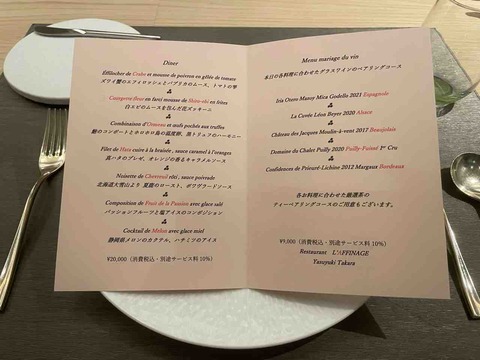 Diner
Effilocher de Crabe et mousse de poivron en gelée de tomate
ズワイ蟹のエフィロッシェとパプリカのムース、トマトの雫
Courgette fleur en farci mousse de Shiro-ebi en frites
白エビのムースを包んだ花ズッキーニ
Combinaison d'Ormeau et œufs pochés aux truffes
鮑のコンポートとホロホロ鳥の温度卵、黒トリュフのハーモニー
Filet de Hata cuire à la braisée, sauce caramel à l'oranges
真ハタのブレゼ、オレンジの香るキャラメルソース
Noisette de Chevreuil rôti, sauce poivrade
北海道大雪山より 夏鹿のロースト、ポワヴラードソース
Composition de Fruit de la Passion avec glace salé
パッションフルーツと塩アイスのコンポジション
Cocktail de Melon avec glace miel
静岡県メロンのカクテル、ハチミツのアイス
¥20,000（消費税込・別途サービス料 10%）
Menu mariage du vin
本日の各料理に合わせたグラスワインのペアリングコース
Iria Otero Mazoy Mica Godello 2021 Espagnole
La Cuvée Léon Beyer 2020 Alsace
Château des Jacques Moulin-à-vent 2017 Beaujolais
Domaine du Chalet Pouilly 2020 Puilly-Fuissé 1er Cru
Confidences de Prieuré-Lichine 2012 Margaux Bordeaux
各お料理に合わせた厳選茶の
ティーペアリングコースのご用意もございます。
¥9,000（消費税込・別途サービス料 10%）
Restaurant L'AFFINAGE
Yasuyuki Takara